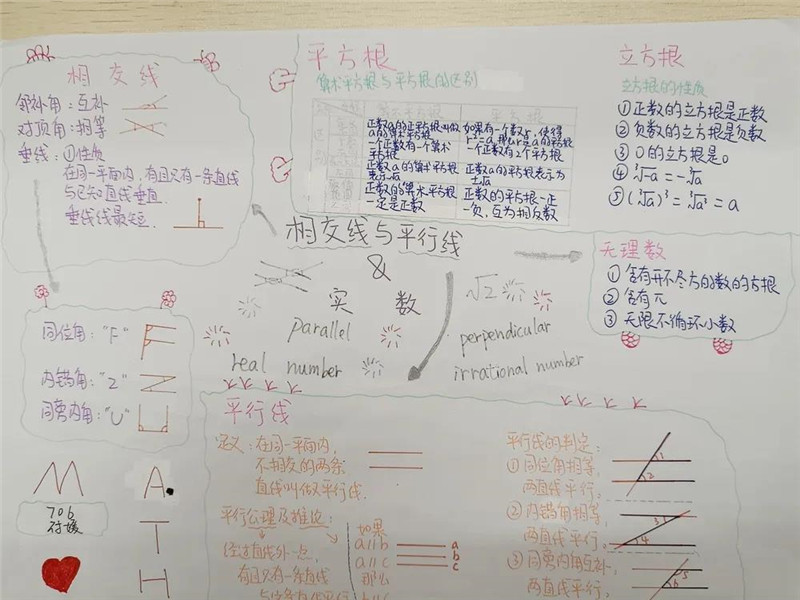 相交线
邻补角：互补
对顶角：相等
垂线：①性质
在同一平面内，有且只有一条直线
与已知直线垂直.
垂线线最短.
平方根
算术平方根与平方根的区别
算术平方根
平方根
正数a的正平方根叫做
a的算术平方根
如果有一个数r，使得
r²=a，那么r是a的平方根
一个正数有一个算术
平方根
一个正数有2个平方根
正数a的算术平方根
表示√a
正数a的平方根表示为
±√a
正数的算术平方根
一定是正数
正数的平方根一正
一负，互为相反数
立方根
立方根的性质
①正数的立方根是正数
②负数的立方根是负数
③0的立方根是0
④∛-a=-∛a
⑤(∛a)³=∛a³=a
相交线与平行线
&
实数
√2
parallel
perpendicular
real number
irrational number
无理数
①含有开不尽方的数的方根
②含有π
③无限不循环小数
同位角："F"
内错角："Z"
同旁内角："U"
M
A
706
T
H
平行线
定义：在同一平面内，
不相交的两条
直线叫做平行线.
平行公理及推论：
经过直线外一点，
有且只有一条直线
与这条直线平行
如果
a∥b
a∥c
那么
b∥c
a
b
c
平行线的判定：
①同位角相等，
两直线平行，
②内错角相等，
两直线平行，
③同旁内角互补，
两直线平行，
1
2
3
4
5
6